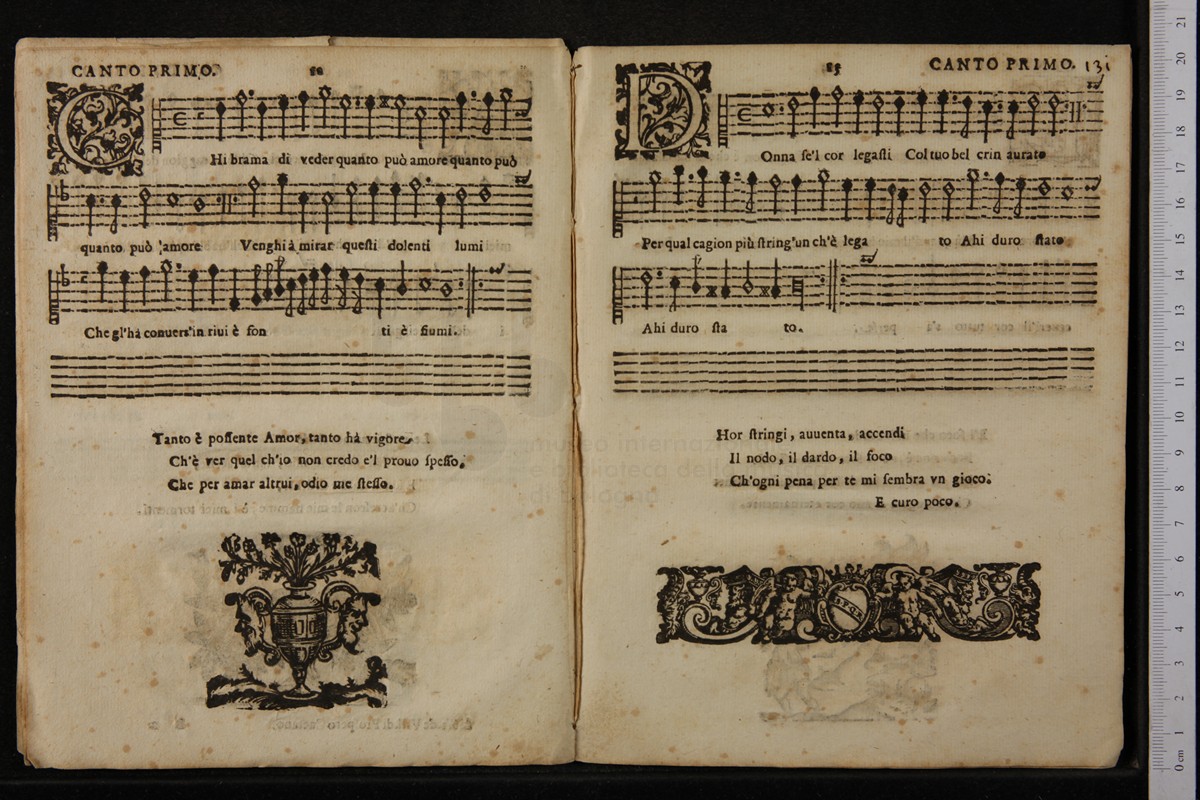 CANTO PRIMO.
CHi brama di veder quanto può amore quanto può
quanto può amore Venghi à mirar questi dolenti lumi
Che gl'hà conuers'in riui è fon ti è fiumi.
Tanto è possente Amor, tanto hà vigore
Ch'è ver quel ch'io non credo e'l prouo spesso,
Che per amar altrui, odio me stesso.
15 CANTO PRIMO. 131
DOnna se'l cor legasti Col tuo bel crin aurato
Per qual cagion più string'un ch'è lega to Ahi duro stato
Ahi duro sta to.
Hor stringi, auuenta, accendi
Il nodo, il dardo, il foco
Ch'ogni pena per te mi sembra vn gioco.
E curo poco.
museo internazionale
e biblioteca della musica
di bologna
21
20
19
18
17
16
15
14
13
12
11
10
9
8
7
6
5
4
3
2
1
0 cm